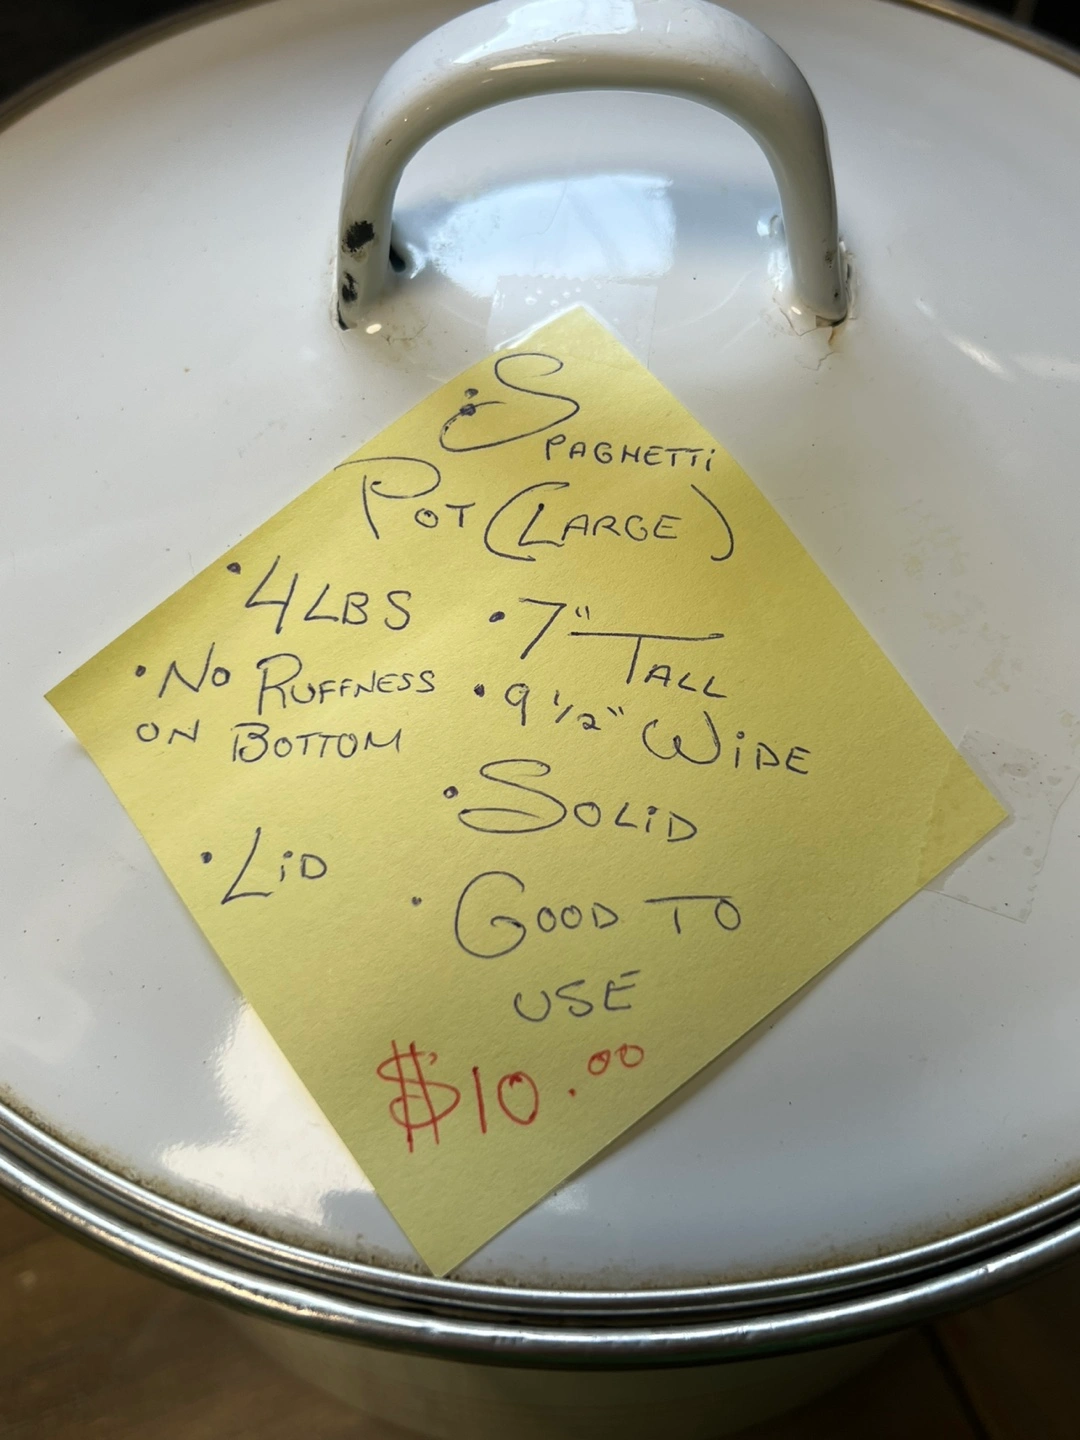 • SPAGHETTI
POT (LARGE)
• 4 LBS
• NO RUFFNESS
ON BOTTOM
• LiD
• 7" TALL
• 9 1/2" WiDE
• SOLiD
• GOOD TO
USE
$10.00